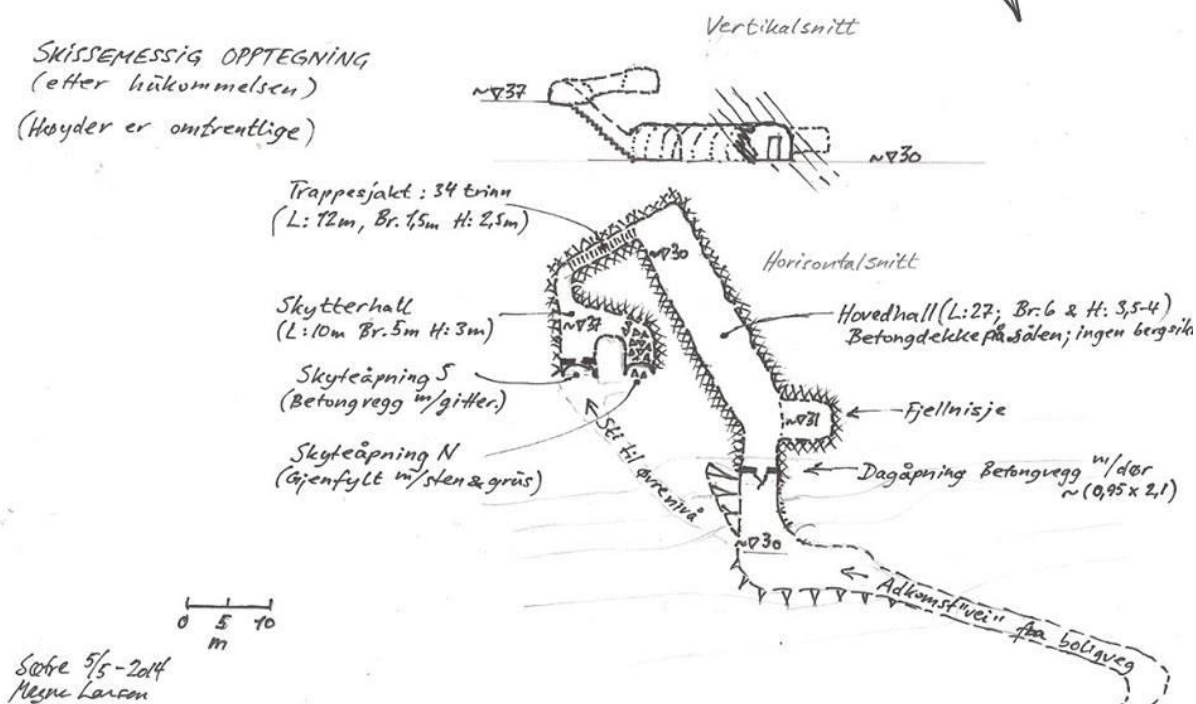 SKISSEMESSIG OPPTEGNING
(etter hukommelsen)
(Høyder er omtrentlige)
Vertikalsnitt
~▽37
~▽30
Trappesjakt : 34 trinn
(L: 12m, Br. 1,5m H: 2,5m)
~▽30
Horisontalsnitt
Skytterhall
(L:10m Br. 5m H: 3m)
~▽37
Hovedhall (L:27; Br:6 & H: 3,5-4)
Betongdekke på sålen; ingen bergsik
Skyteåpning S
(Betongvegg m/gitter.)
~▽31
Fjellnisje
Sti til øvre nivå
Skyteåpning N
(Gjenfylt m/sten & grus)
Dagåpning Betongvegg m/dør
~(0,95 x 2,1)
~▽30
Adkomst "vei" fra boligveg
0 5 10
m
Sætre 5/5-2014
Magne Larsen